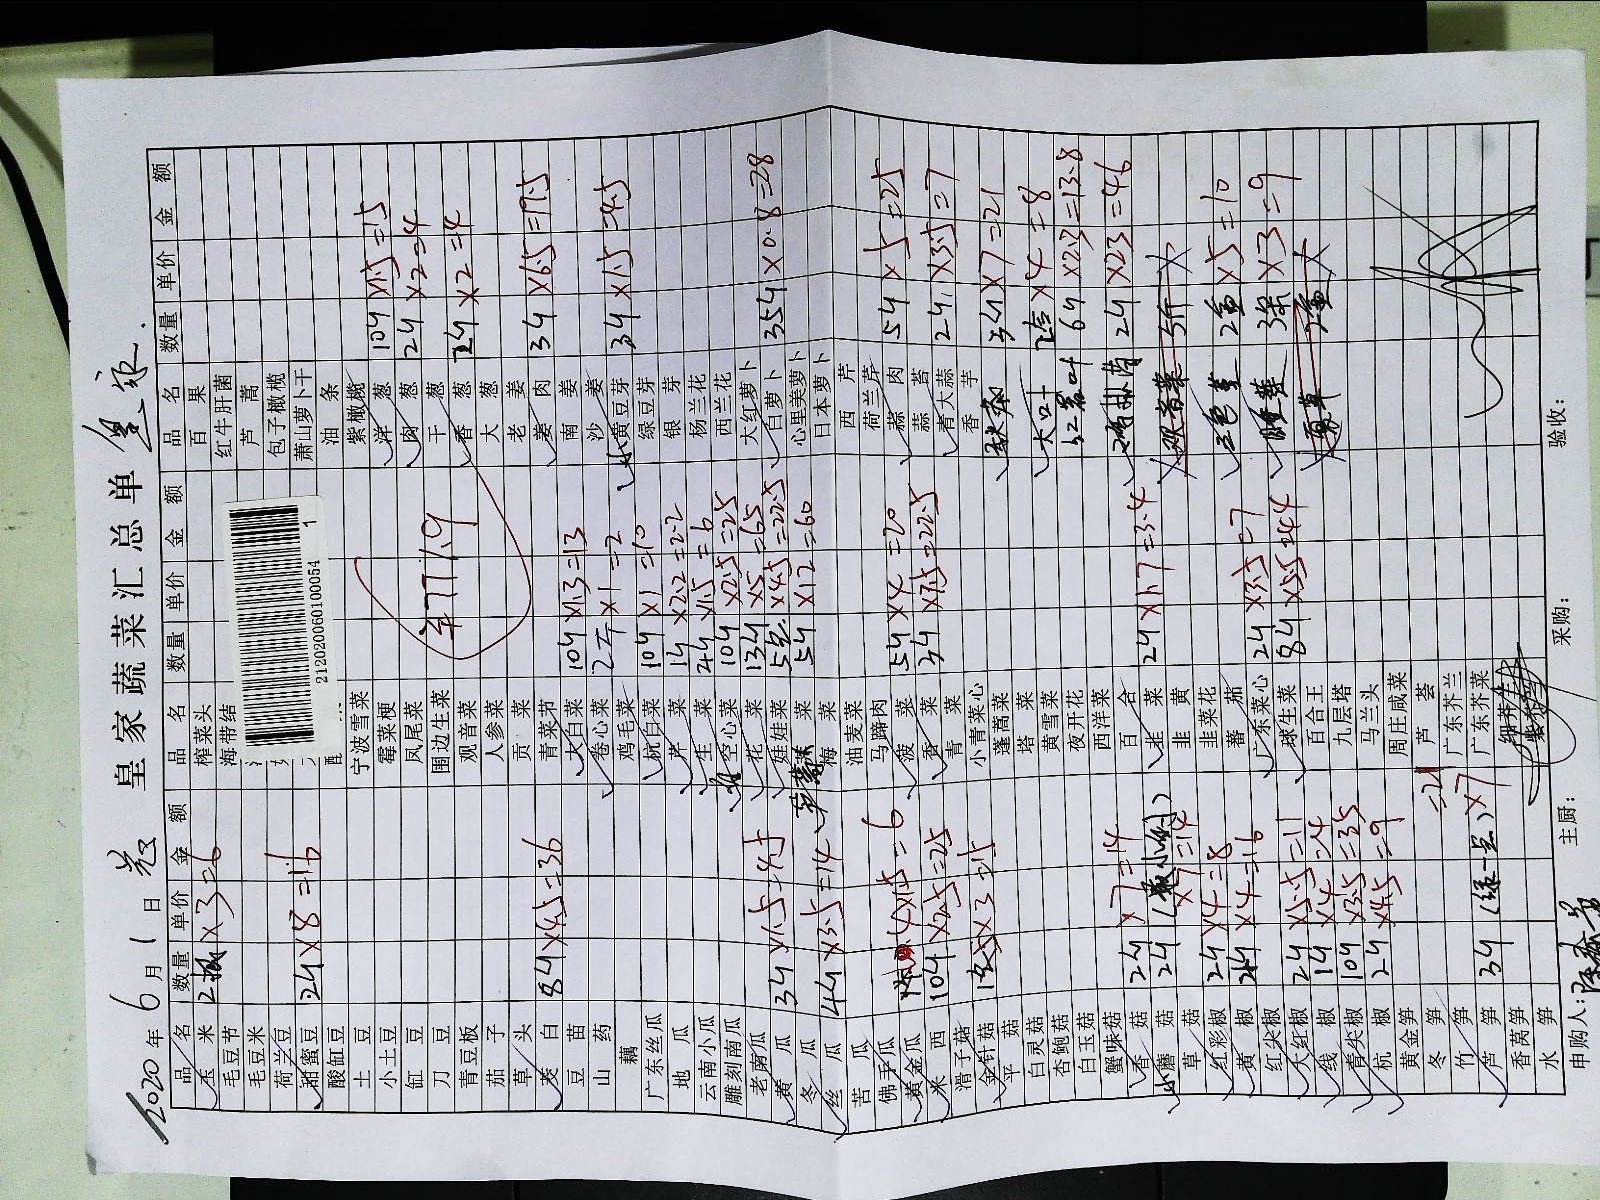 2020年6月1日 皇家蔬菜汇总单
品名 数量 单价 金额 品名 数量 单价 金额 品名 数量 单价 金额
玉米 ×3=6 榨菜头 百果
毛豆节 海带结 红牛肝菌
毛豆米 芦蒿
荷兰豆 包子橄榄
甜蜜豆 24×8=16 萧山萝卜干
酸缸豆 油条
土豆 宁波雪菜 紫橄榄
小土豆 霉菜梗 洋葱 104×1.5=15
缸豆 凤尾菜 肉葱 24×2=4
刀豆 围边生菜 干葱
青豆板 观音菜 香葱 24×2=4
茄子 人参菜 大葱
草头 贡菜 老姜
茭白 84×4.5=36 青菜节 姜肉 34×6.5=19.5
豆苗 大白菜 104×1.3=13 南姜
山药 卷心菜 2个×1=2 沙姜
藕 鸡毛菜 小黄豆芽 34×1.5=4.5
广东丝瓜 杭白菜 104×1=10 绿豆芽
地瓜 芹菜 14×2.2=2.2 银芽
云南小瓜 生菜 44×1.5=6 杨兰花
雕刻南瓜 空心菜 104×2.5=25 西兰花
老南瓜 花菜 134×5=65 大红萝卜
黄瓜 34×1.5=4.5 娃娃菜 ×4.5=22.5 白萝卜 354×0.8=28
冬瓜 梅菜 54×12=60 心里美萝卜
丝瓜 44×3.5=14 油麦菜 日本萝卜
苦瓜 马蹄肉 西芹
佛手瓜 荷兰芹
黄金瓜 4×1.5=6 菠菜 54×4=20 蒜肉 54×5=25
米西 104×2.5=25 香菜 34×7.5=22.5 蒜苔
滑子菇 青菜 青大蒜 24×3.5=7
金针菇 ×3=15 小青菜心 香芋
平菇 蓬蒿菜 34×7=21
白灵菇 塔菜 大叶 ×4=8
杏鲍菇 黄雪菜 64×2.3=13.8
白玉菇 夜开花
蟹味菇 西洋菜 24×23=46
香菇 24×7=14 百合
小蘑菇 24×7=14 韭菜 24×1.7=3.4 5斤
草菇 韭黄
红彩椒 24×4=8 韭菜花 2盒×5=10
黄椒 24×4=16 蕃茄
红尖椒 广东菜心 24×3.5=7 3条×3=9
大红椒 24×5.5=11 球生菜 84×5.5=44
线椒 14×4=4 百合王 夏草 2盒
青尖椒 104×3.5=35 九层塔
杭椒 24×4.5=9 马兰头
黄金笋 周庄咸菜
冬笋 芦荟
竹笋 广东芥兰
芦笋 34 ×7=21 广东芥菜
香莴笋
水笋
¥771.9
212020060100054 1
申购人： 主厨： 采购： 验收：